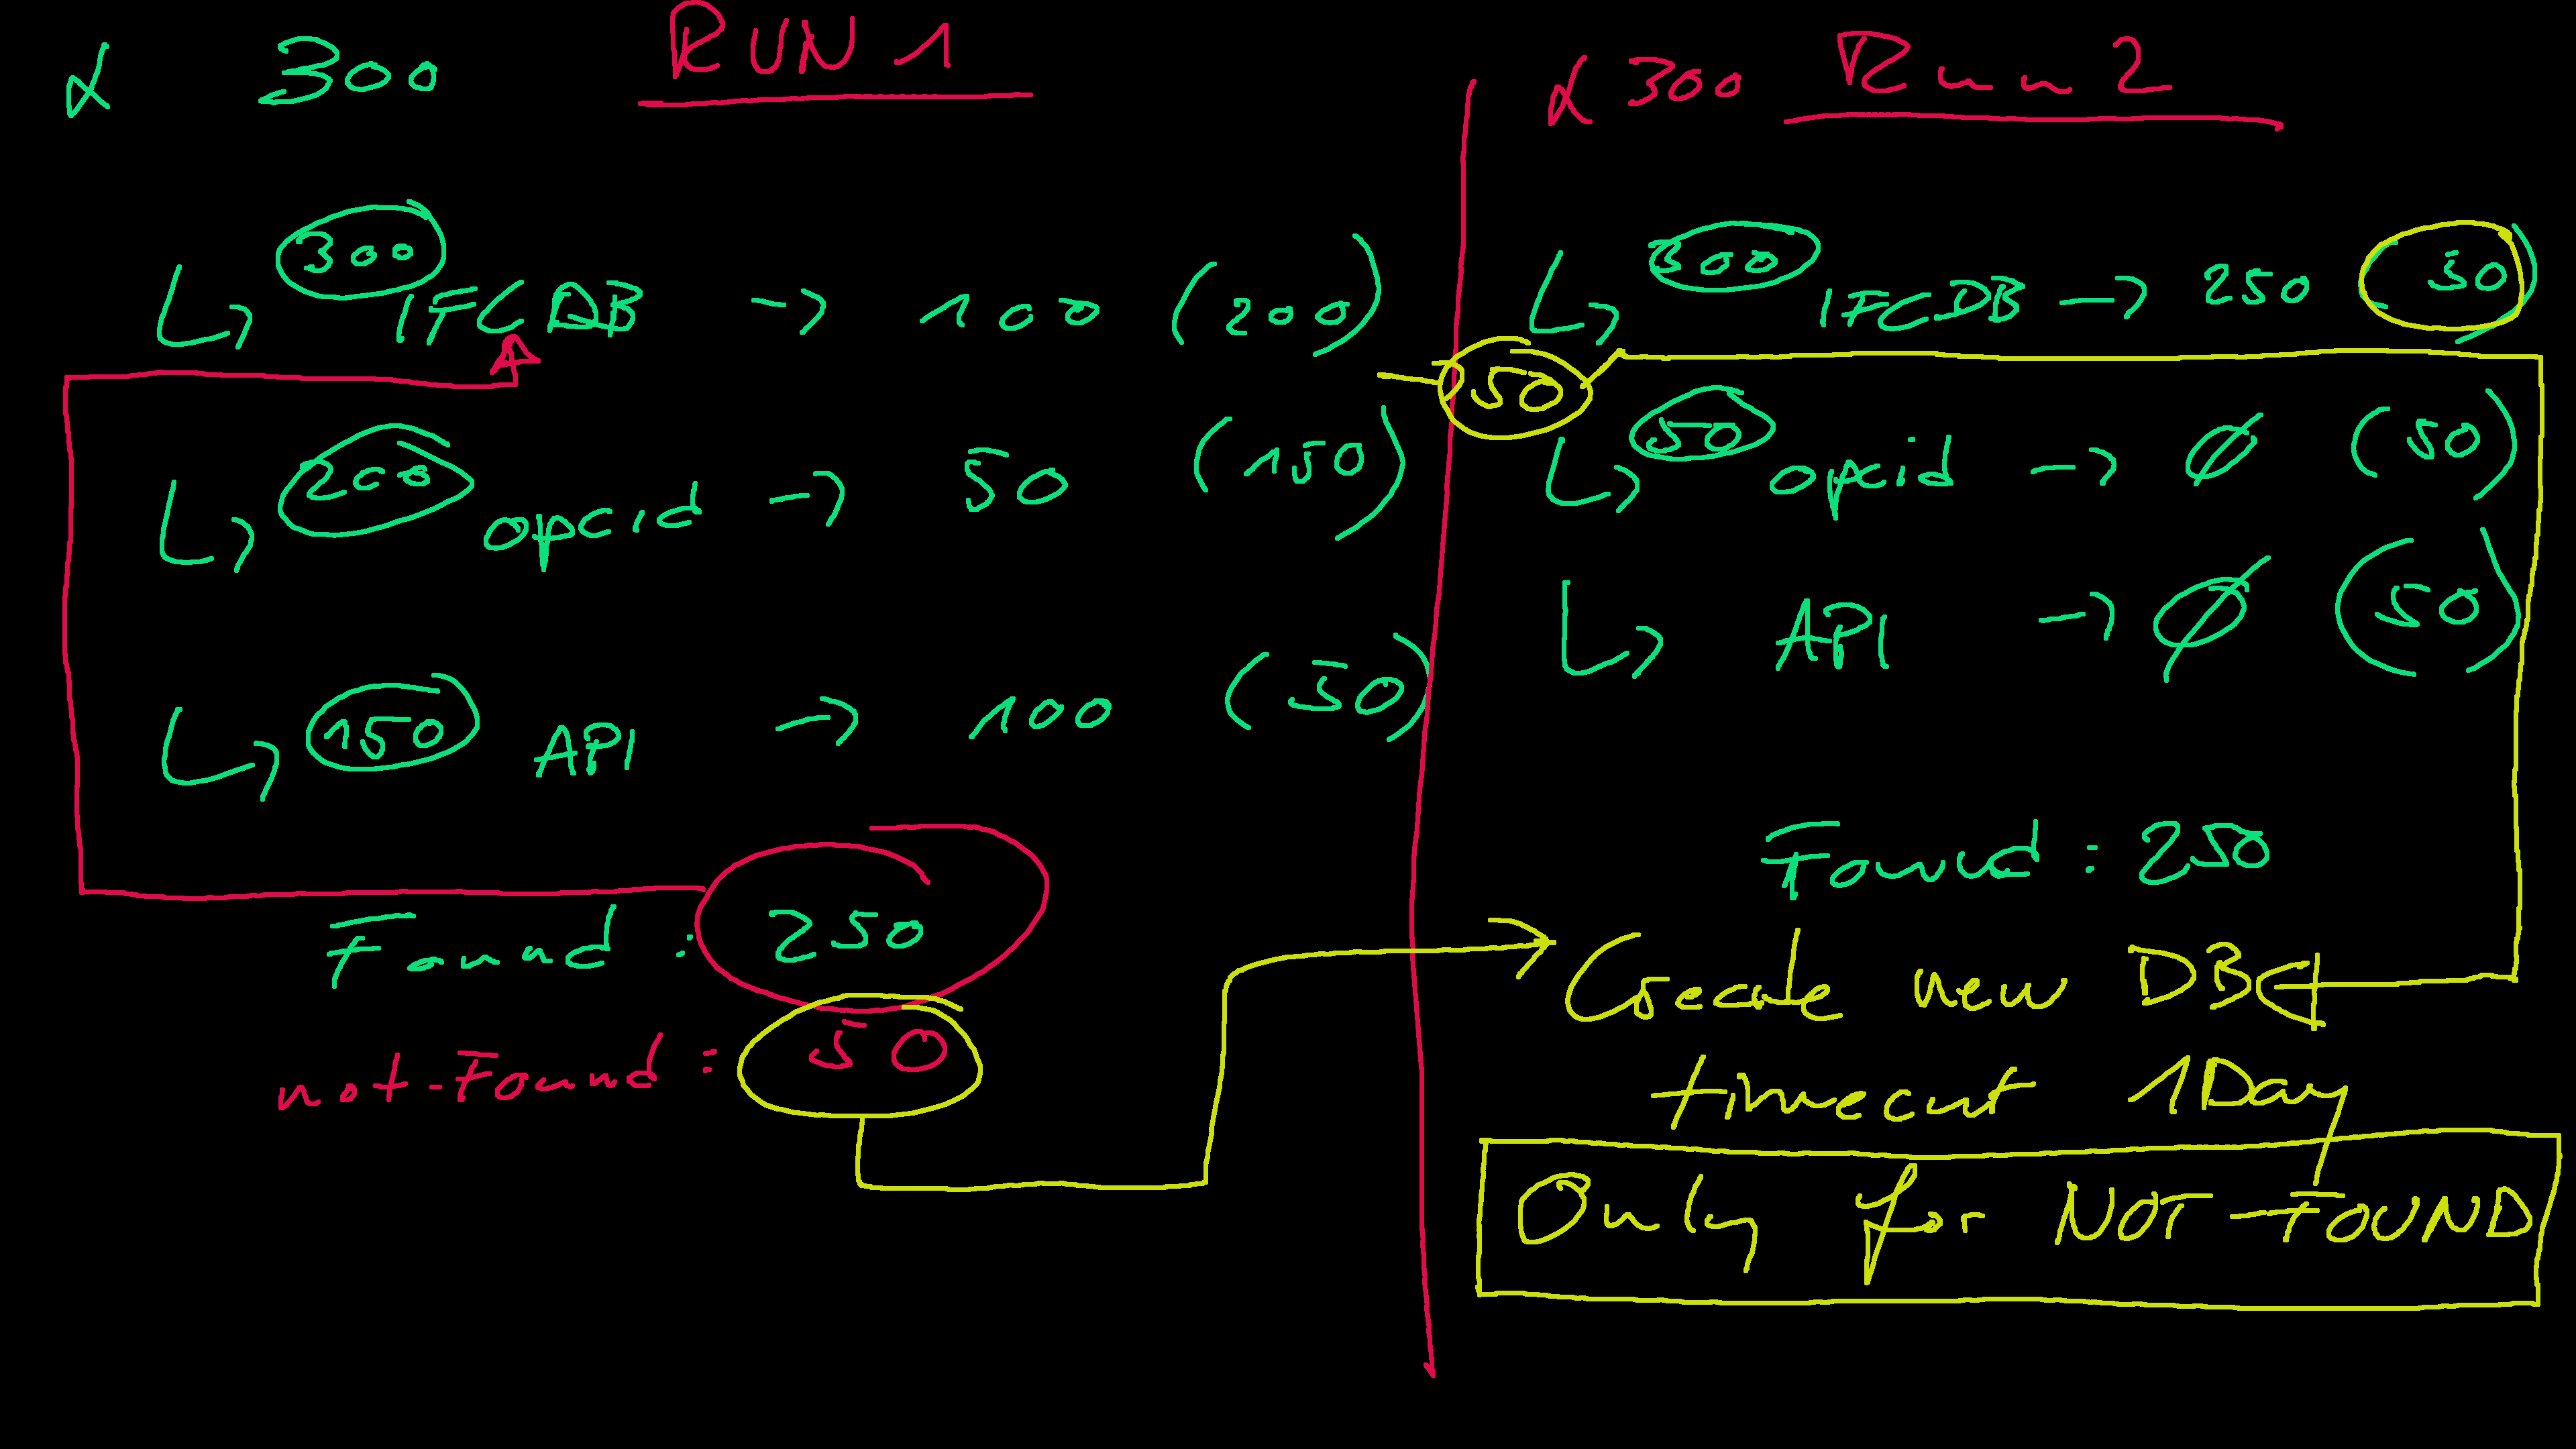 α 300 RUN 1
300
IFCDB → 100 (200)
200
opcid → 50 (150)
150 API → 100 (50)
Found : 250
not-Found : 50
α 300 Run 2
300
IFCDB → 250 (50)
50
50
opcid → Ø (50)
API → Ø (50)
Found : 250
Create new DB
timeout 1Day
Only for NOT-FOUND